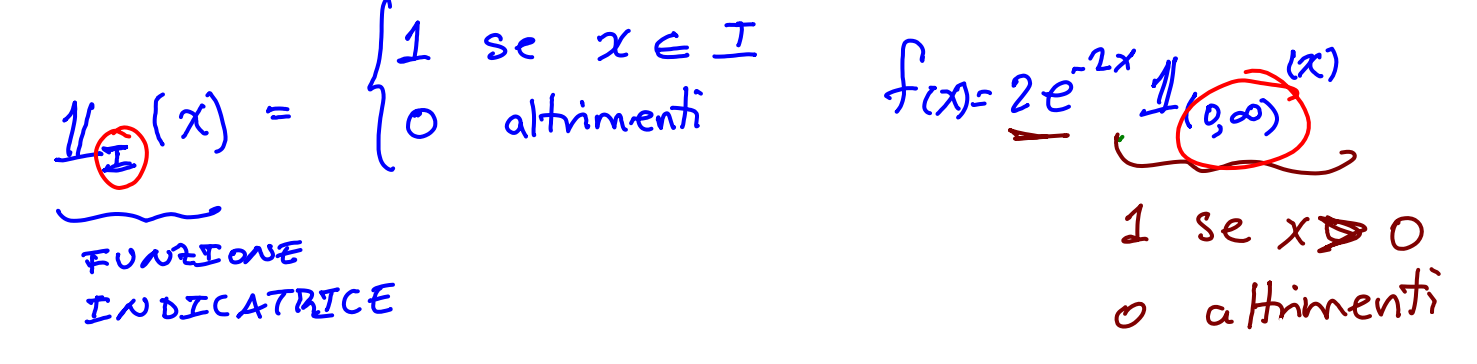 𝟙_I (x) = { 1 se x ∈ I
0 altrimenti
FUNZIONE
INDICATRICE
f(x) = 2e^{-2x} 𝟙_{(0,∞)}(x)
1 se x > 0
0 altrimenti